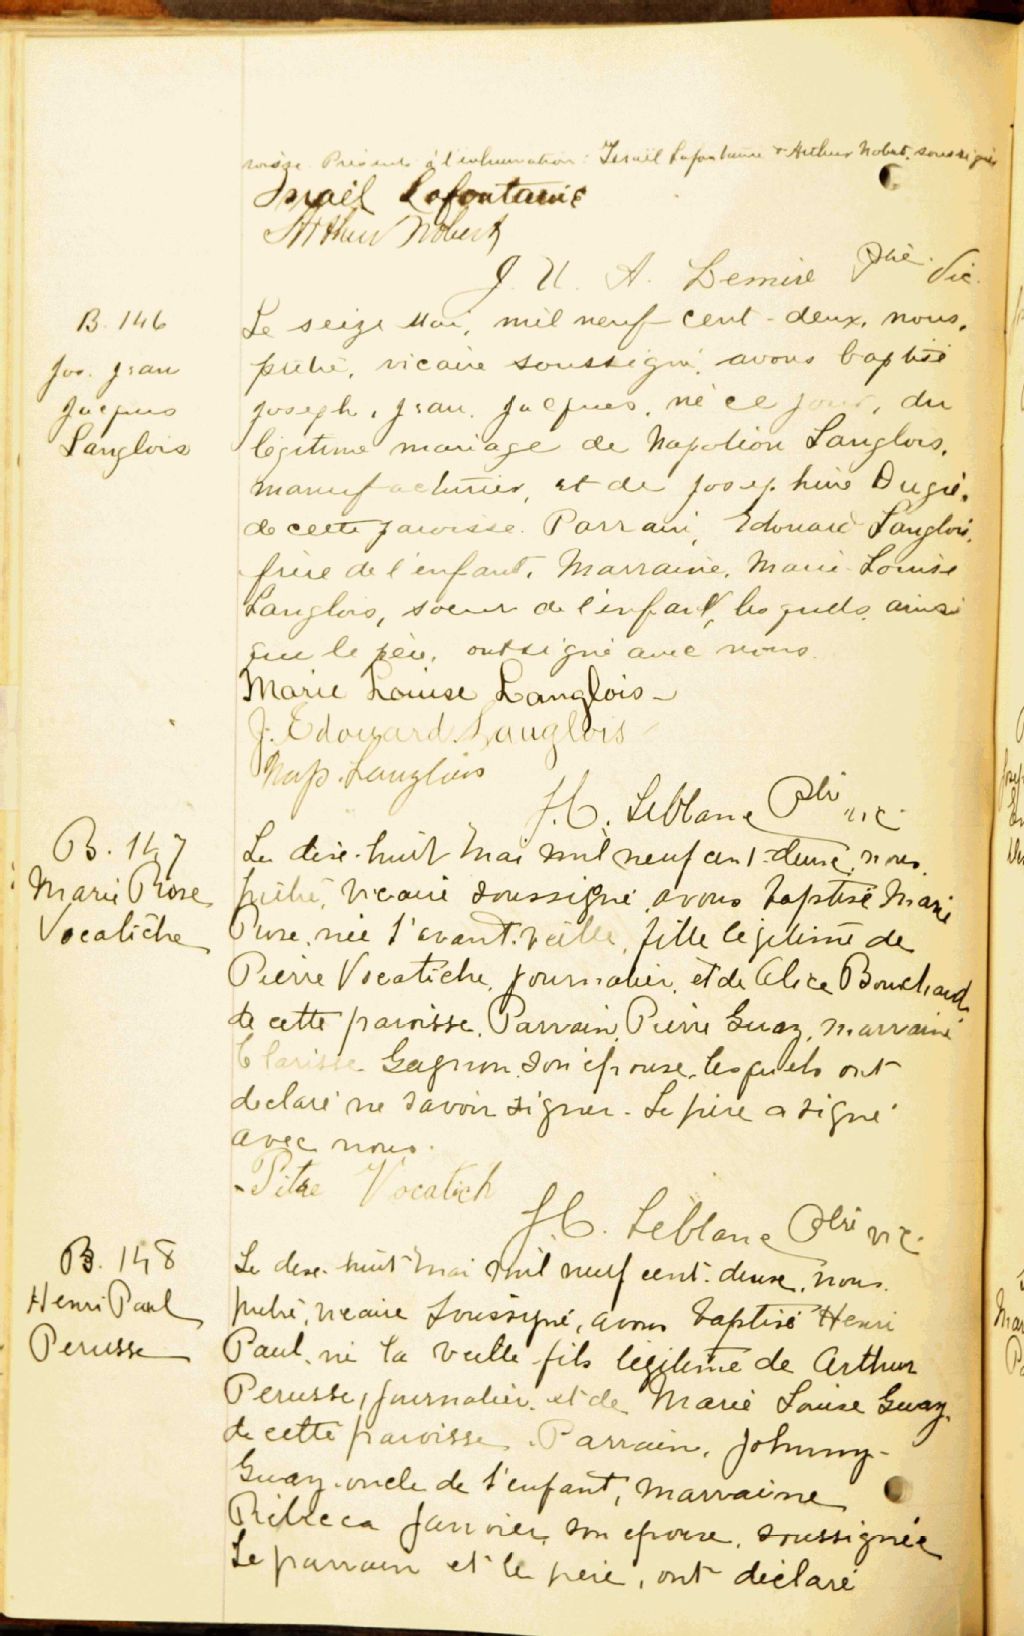 roisse. Présents à l'inhumation: Israël Lafontaine & Arthur Nobert, soussignés
Israël Lafontaine
Arthur Nobert
J. U. A. Demire Ptre. Vic.
B. 146
Jos. Jean
Jacques
Langlois
Le seize Mai, mil neuf cent-deux, nous,
prêtre, vicaire soussigné, avons baptisé
Joseph, Jean, Jacques, né ce jour, du
légitime mariage de Napoléon Langlois,
manufacturier, et de Joséphine Dugré,
de cette paroisse. Parrain, Edouard Langlois,
frère de l'enfant, Marraine, Marie-Louise
Langlois, soeur de l'enfant, lesquels, ainsi
que le père, ont signé avec nous.
Marie Louise Langlois
J. Edouard Langlois
Nap. Langlois
J. C. Leblanc Ptre vic.
B. 147
Marie Rose
Vocatiche
Le dixe-huit Mai mil neuf cent-deux, nous,
prêtre, vicaire soussigné, avons baptisé Marie
Rose, née l'avant-veille, fille légitime de
Pierre Vocatiche, journalier, et de Alice Bouchard,
de cette paroisse. Parrain, Pierre Guay, marraine
Clarisse Gagnon son épouse, lesquels ont
déclaré ne savoir signer. Le père a signé
avec nous.
Pitre Vocatich
J. C. Leblanc Ptre vic.
B. 148
Henri Paul
Perusse
Le dixe-huit Mai mil neuf cent-deux, nous,
prêtre, vicaire soussigné, avons baptisé Henri
Paul, né la veille fils légitime de Arthur
Perusse, journalier, et de Marie Louise Guay,
de cette paroisse. Parrain, Johnny
Guay, oncle de l'enfant, marraine
Rébecca Janvier, son épouse, soussignée
Le parrain et le père, ont déclaré